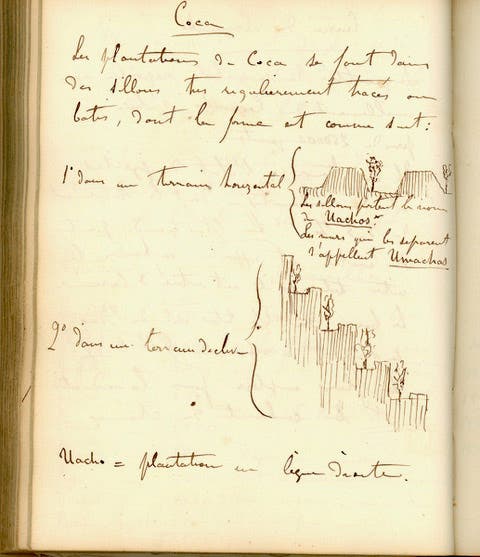 Coca
Les plantations de Coca se font dans
des sillons très régulièrement tracés ou
batis, dont la forme est comme suit:
1° dans un terrain horizontal
Les sillons portent le nom
de Uachos
Les murs qui les séparent
s'appellent Umachas
2° dans un terrain declive
Uacho = plantation en ligne droite.